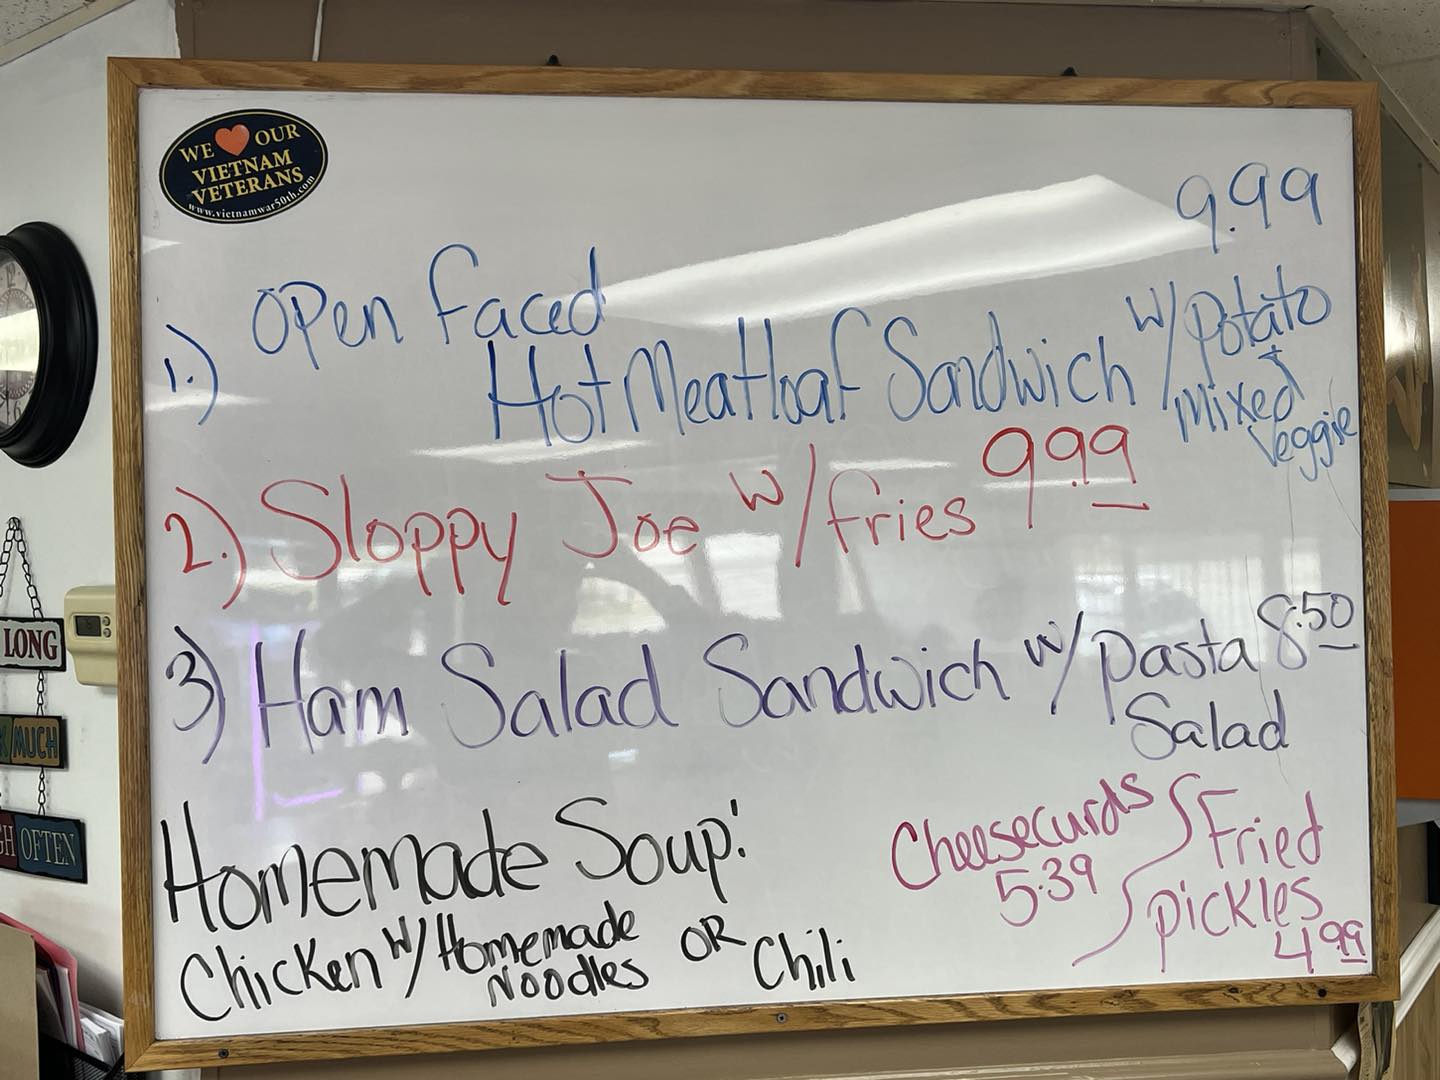 WE ❤ OUR
VIETNAM
VETERANS
www.vietnamwar50th.com
9.99
1.) Open faced
Hot Meatloaf Sandwich w/ Potato
& Mixed
Veggie
2.) Sloppy Joe w/ fries 9.99
3) Ham Salad Sandwich w/ pasta 8.50
Salad
Homemade Soup:
Chicken w/ Homemade
Noodles OR Chili
Cheesecurds
5.39
Fried
pickles
4.99
LONG
MUCH
OFTEN